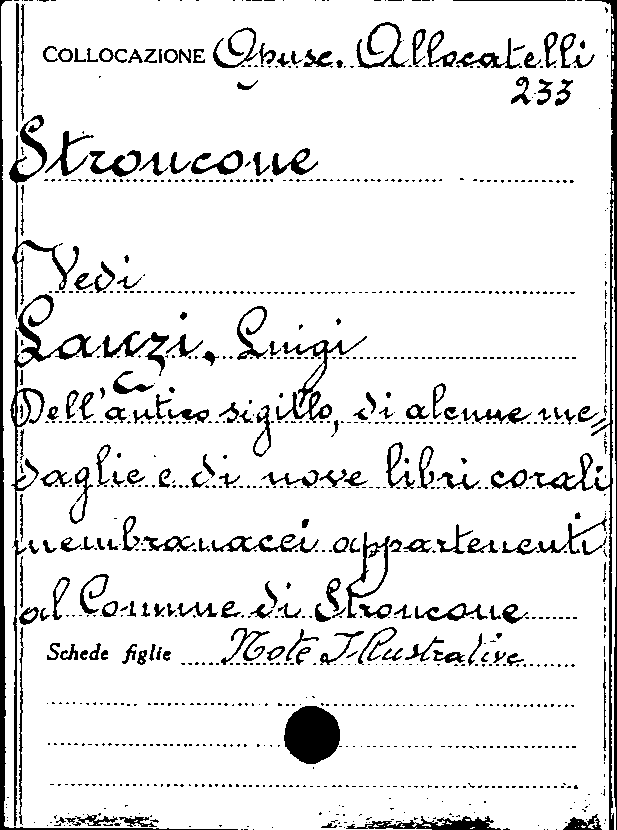 COLLOCAZIONE Opusc. Allocatelli
233
Stroncone
Vedi
Lanzi, Luigi
Dell'antico sigillo, di alcune me=
daglie e di nove libri corali
membranacei appartenenti
al Comune di Stroncone
Schede figlie Note Illustrative